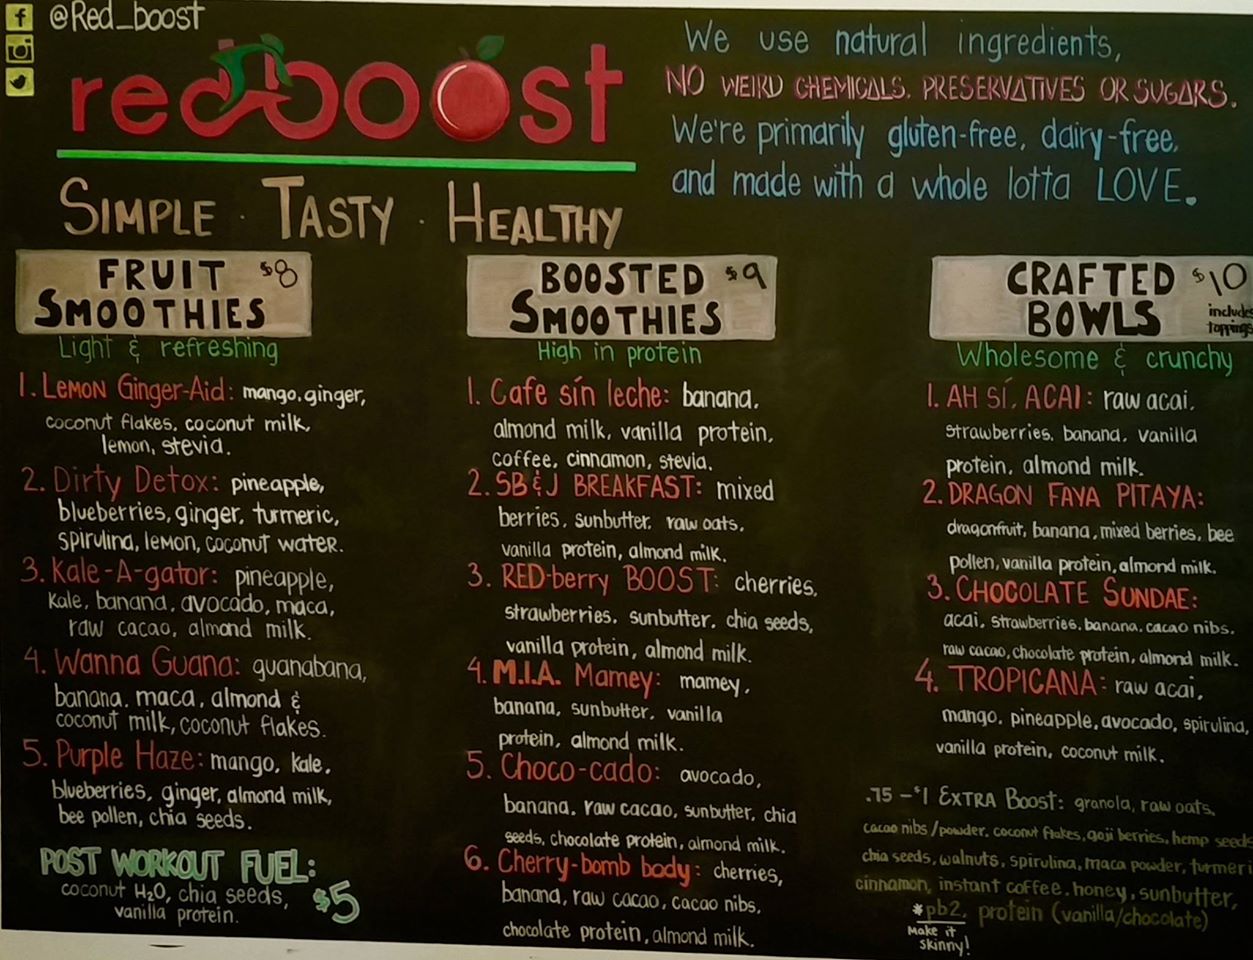 @Red_boost
redboost
SIMPLE · TASTY · HEALTHY
We use natural ingredients,
NO WEIRD CHEMICALS, PRESERVATIVES OR SUGARS.
We're primarily gluten-free, dairy-free,
and made with a whole lotta LOVE.
FRUIT $8
SMOOTHIES
Light & refreshing
1. LEMON Ginger-Aid: mango, ginger,
coconut flakes, coconut milk,
lemon, stevia.
2. Dirty Detox: pineapple,
blueberries, ginger, turmeric,
spirulina, lemon, coconut water.
3. Kale-A-gator: pineapple,
kale, banana, avocado, maca,
raw cacao, almond milk.
4. Wanna Guana: guanabana,
banana, maca, almond &
coconut milk, coconut flakes.
5. Purple Haze: mango, kale,
blueberries, ginger, almond milk,
bee pollen, chia seeds.
POST WORKOUT FUEL:
coconut H2O, chia seeds, $5
vanilla protein.
BOOSTED $9
SMOOTHIES
High in protein
1. Cafe sín leche: banana,
almond milk, vanilla protein,
coffee, cinnamon, stevia.
2. SB&J BREAKFAST: mixed
berries, sunbutter, raw oats,
vanilla protein, almond milk.
3. RED-berry BOOST: cherries,
strawberries, sunbutter, chia seeds,
vanilla protein, almond milk.
4. M.I.A. Mamey: mamey,
banana, sunbutter, vanilla
protein, almond milk.
5. Choco-cado: avocado,
banana, raw cacao, sunbutter, chia
seeds, chocolate protein, almond milk.
6. Cherry-bomb body: cherries,
banana, raw cacao, cacao nibs,
chocolate protein, almond milk.
CRAFTED $10
BOWLS includes
toppings
Wholesome & crunchy
1. AH SÍ, ACAI: raw acai,
strawberries, banana, vanilla
protein, almond milk.
2. DRAGON FAYA PITAYA:
dragonfruit, banana, mixed berries, bee
pollen, vanilla protein, almond milk.
3. CHOCOLATE SUNDAE:
acai, strawberries, banana, cacao nibs,
raw cacao, chocolate protein, almond milk.
4. TROPICANA: raw acai,
mango, pineapple, avocado, spirulina,
vanilla protein, coconut milk.
.75 – $1 EXTRA BOOST: granola, raw oats,
cacao nibs/powder, coconut flakes, goji berries, hemp seeds
chia seeds, walnuts, spirulina, maca powder, turmeri
cinnamon, instant coffee, honey, sunbutter,
*pb2, protein (vanilla/chocolate)
make it
skinny!